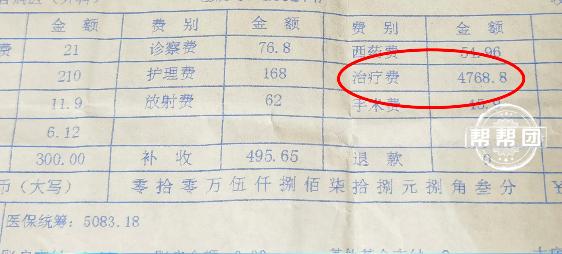 金额 费别 金额 费别 金额
费 21 诊察费 76.8 西药费 54.96
210 护理费 168 治疗费 4768.8
11.9 放射费 62 手术费
6.12
帮帮团
300.00 补收 495.65 退款
币(大写) 零拾零万伍仟捌佰柒拾捌元捌角叁分
医保统筹:5083.18